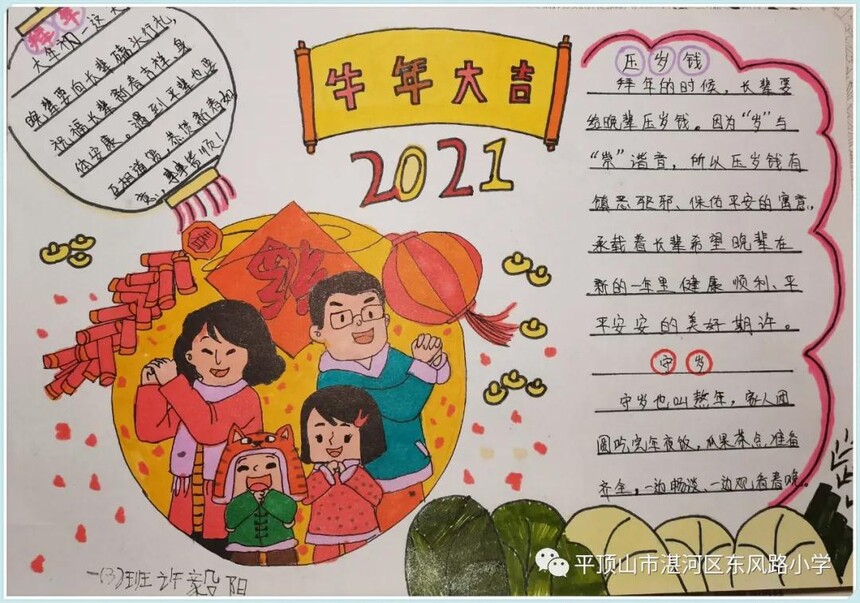 拜年
大年初一这天
晚辈要向长辈磕头行礼,
祝福长辈新春吉祥、身
体安康。遇到平辈也要
互相道贺,恭贺新春如
意,事事皆顺!
牛年大吉
2021
福
春
压岁钱
拜年的时候,长辈要
给晚辈压岁钱。因为“岁”与
“祟”谐音,所以压岁钱有
镇恶驱邪、保佑平安的寓意,
承载着长辈希望晚辈在
新的一年里健康顺利、平
平安安的美好期许。
守岁
守岁也叫熬年,家人团
圆吃完年夜饭,瓜果茶点准备
齐全,一边畅谈、一边观看春晚。
一(3)班许毅阳
平顶山市湛河区东风路小学